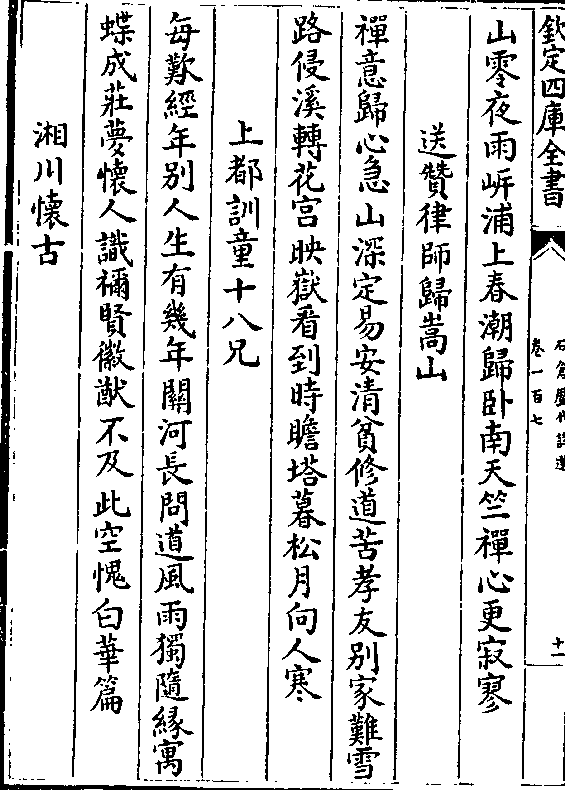 欽定四庫全書
石倉歷代詩選
卷一百七
十一
山零夜雨岍浦上春潮歸卧南天竺禪心更寂寥
送贊律師歸嵩山
禪意歸心急山深定易安清貧修道苦孝友別家難雪
路侵溪轉花宫映嶽看到時瞻塔暮松月向人寒
上都訓童十八兄
每歎經年別人生有幾年關河長問道風雨獨隨緣寓
蝶成莊夢懷人識禰賢徽猷不及此空愧白華篇
湘川懷古